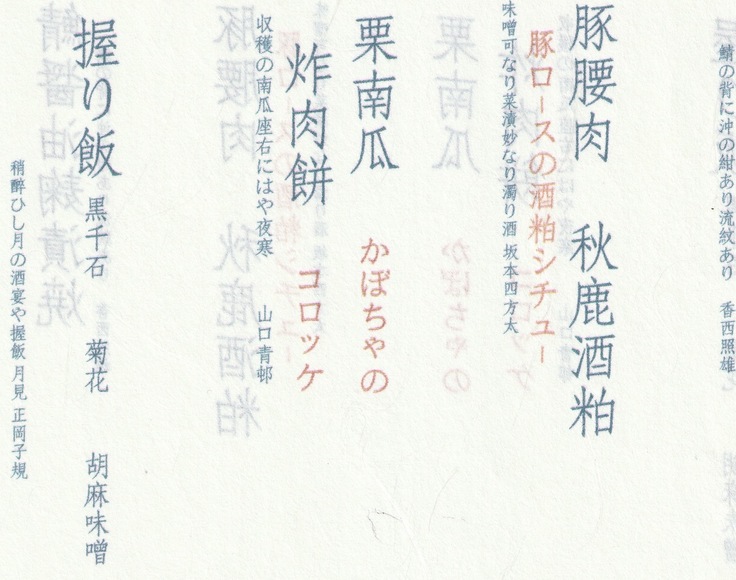 鯖の背に沖の紺あり流紋あり　香西照雄
豚腰肉　秋鹿酒粕
豚ロースの酒粕シチュー
味噌可なり菜漬妙なり濁り酒 坂本四方太
栗南瓜　かぼちゃの
炸肉餅　コロッケ
収穫の南瓜座右にはや夜寒　山口青邨
握り飯　黒千石　菊花　胡麻味噌
稍醉ひし月の酒宴や握飯 月見 正岡子規